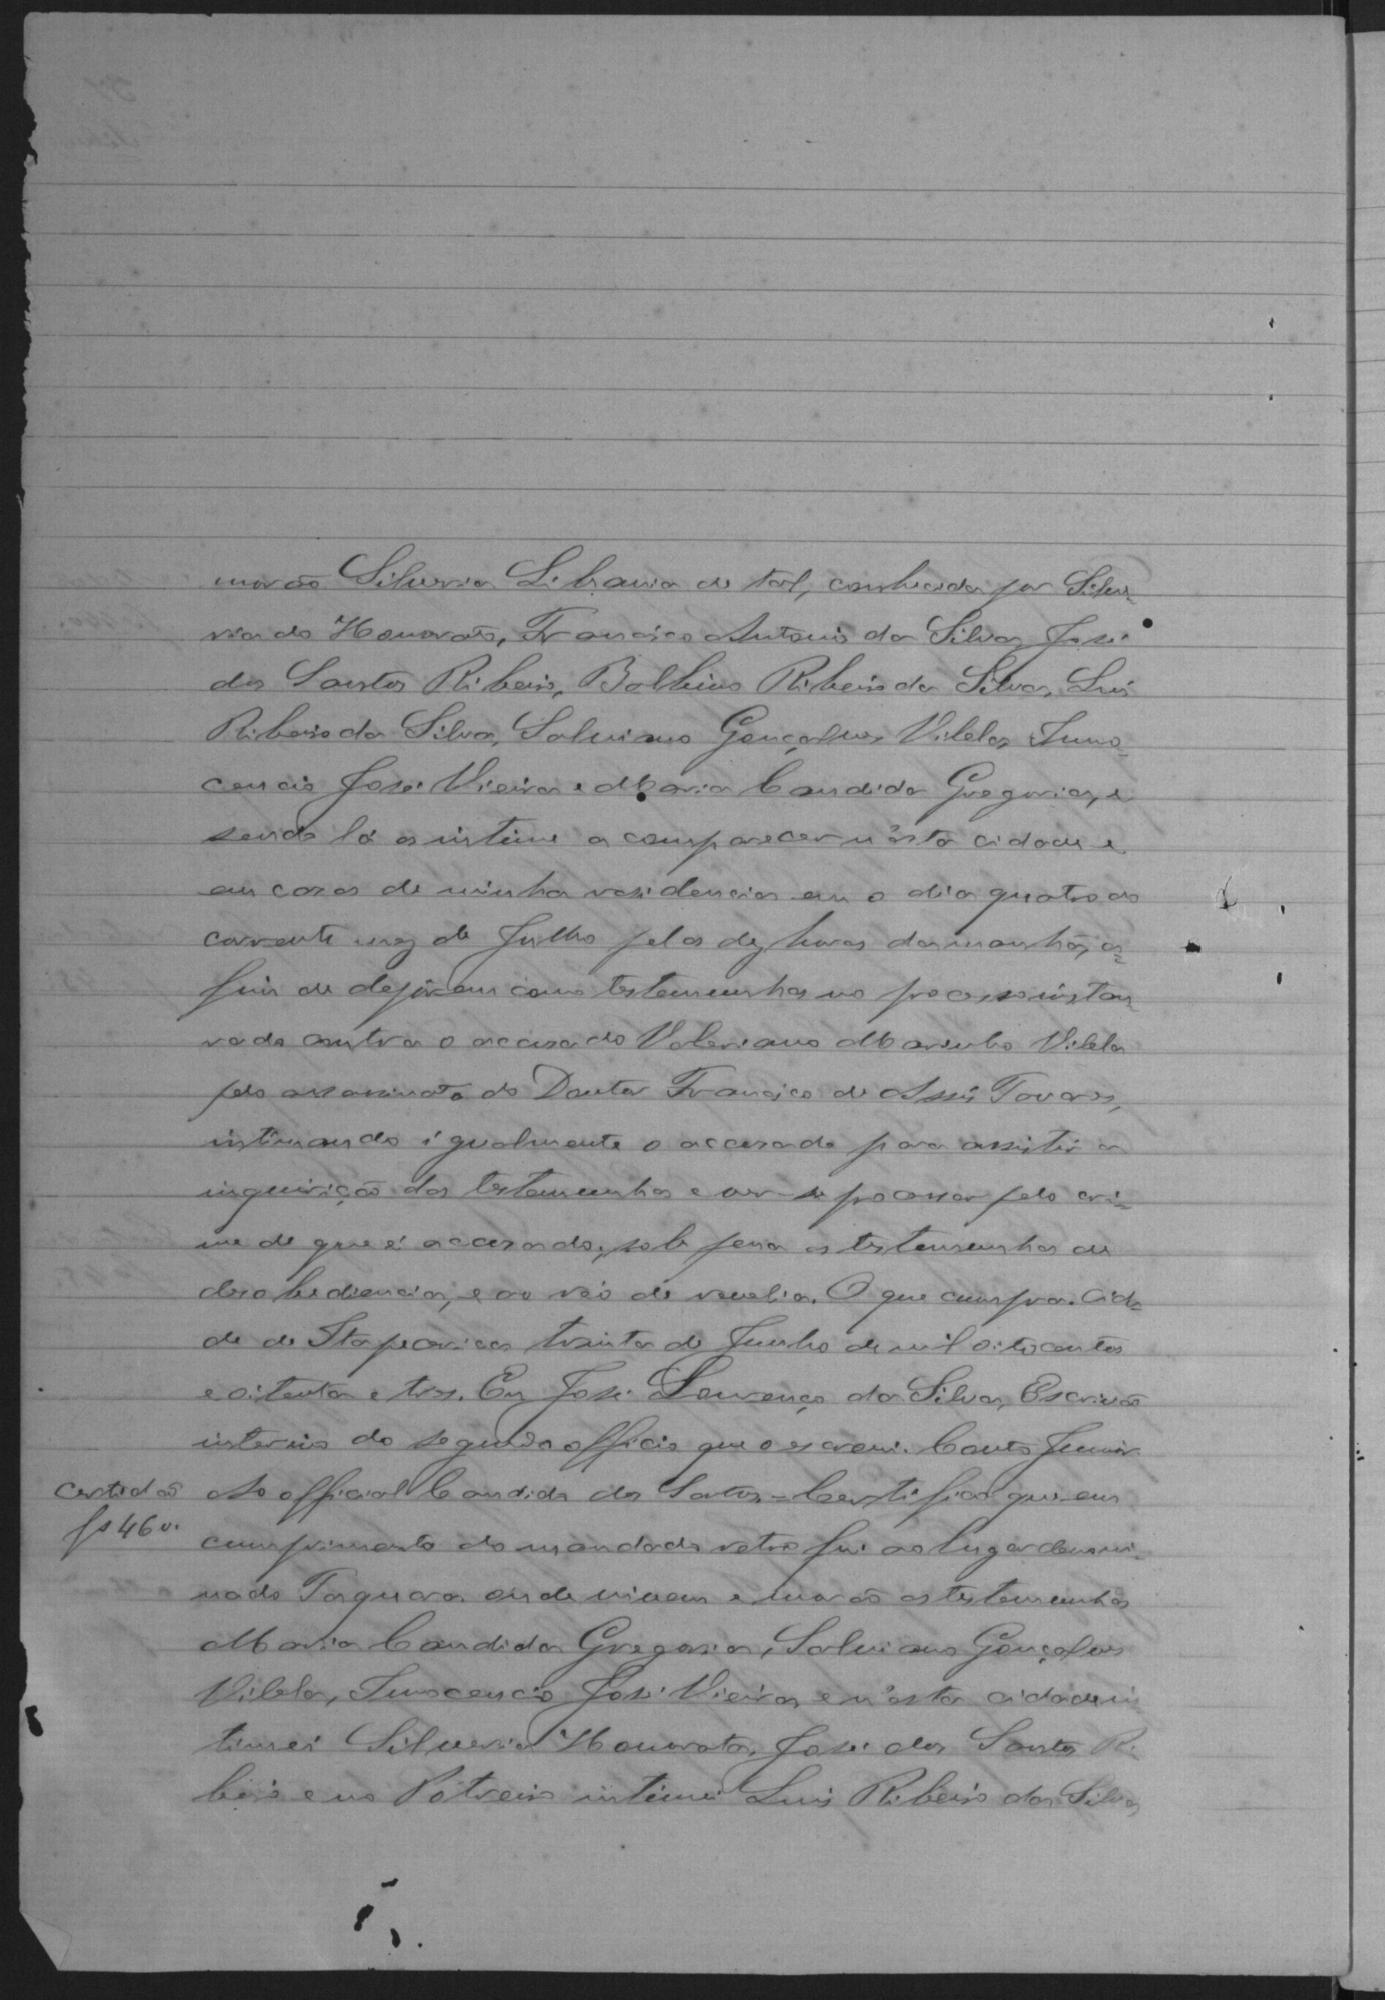 morão Silveria Libania de tal, conhecida por Silve-
ria do Honorato, Francisco Antonio da Silva, José
dos Santos Ribeiro, Balbino Ribeiro da Silva, Luis
Ribeiro da Silva, Salviano Gonçalves Vilela, Inno-
cencio José Vieira e Maria Candida Gregoria, e
sendo lá os intime a comparecer n'esta cidade e
em casa de minha residencia em o dia quatro do
corrente mez de Julho pelas dez horas da manhã, a-
fim de depôrem como testemunhas no processo instau
rado contra o accusado Valeriano Marinho Vilela
pelo assassinato do Doutor Francisco de Assis Tavares,
intimando igualmente o accusado para assistir a
inquirição das testemunhas e ver-se processar pelo cri-
me de que é accusado, sob pena as testemunhas de
desobediencia, e ao réo de revelia. O que cumpra. Cida-
de de Itapecerica trinta de Junho de mil oitocentos
e oitenta e tres. Eu José Lourenço da Silva, Escrivão
interino do segundo officio que o escrevi. Couto Junior
certidão
fs 46 v.
Ao official Candido dos Santos = Certifico que em
cumprimento do mandado retro fui ao lugar denomi-
nado Taquara onde vivem e morão as testemunhas
Maria Candida Gregoria, Salviano Gonçalves
Vilela, Innocencio José Vieira e n'esta cidade in
timei Silveria Honorata, José dos Santos Ri-
beiro e no Potreiro intimei Luis Ribeiro da Silva